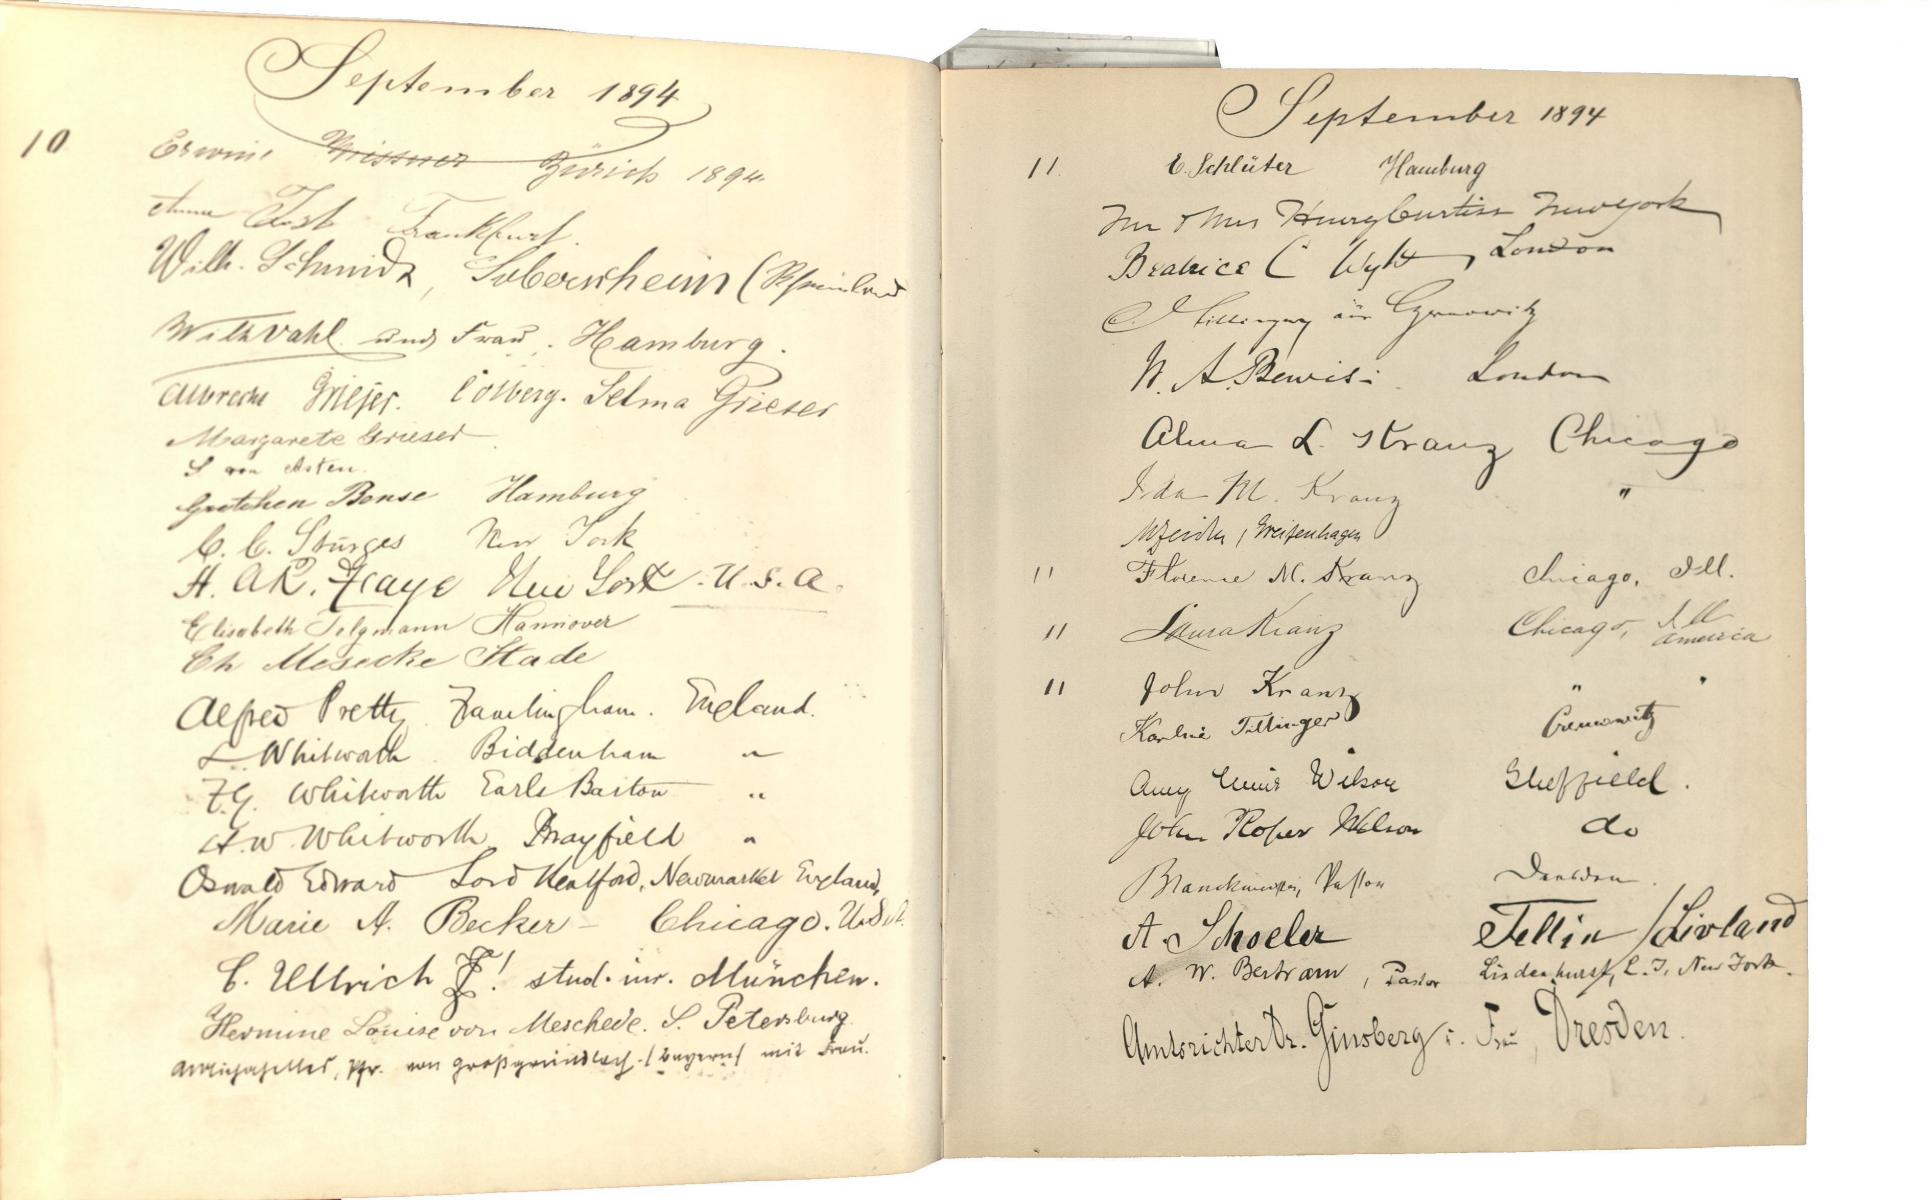 September 1894
10
Erwin Zürich 1894
Anna Jost Frankfurt.
Wilh. Schmidt, Sobernheim (Rheinland
Wilh Vahl und Frau. Hamburg.
Albrecht Grieser. Colberg. Selma Grieser
Margarete Grieser
S von Asten.
Gretchen Bense Hamburg
C. C. Sturges New York
H. New York. U. S. A.
Elisabeth Telgmann Hannover
Ch Mesecke Stade
Alfred Pretty. Framlingham. England.
L Whitworth. Biddenham "
F. G. Whitworth Earls Barton "
H. W. Whitworth Brayfield "
Oswald Edward Lord Kentford, Newmarket England,
Marie A. Becker - Chicago. U.S.A.
C. Ullrich ! stud. iur. München.
Hermine Louise von Meschede. S. Petersburg.
Pfr. von Großgründlach (Bayern) mit Frau.
September 1894
11. E. Schlüter Hamburg
Mr & Mrs Henry Curtiss New York
Beatrice C London
C. Tittinger aus Czernowitz
W. A. Bewis London
Alma L. Kranz Chicago
Ida M. Kranz "
Greifenhagen
11 Florence M. Kranz Chicago, Ill.
11 Laura Kranz Chicago, Ill
America
11 John Kranz " "
Tittinger Czernowitz
Amy Wilson Sheffield.
John Roper Wilson do
Pastor Dresden.
A. Schoeler Fellin / Livland
A. W. Bertram, Pastor Lindenhurst, L. I., New York.
Amtsrichter Dr. Ginsberg u. Frau, Dresden.